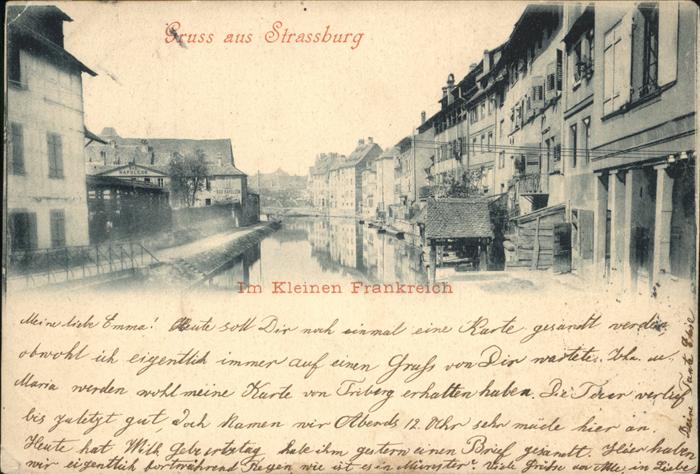 Gruss aus Strassburg
NAPOLEON
Im Kleinen Frankreich
Meine liebe Emma! Heute soll Dir noch einmal eine Karte gesandt werden,
obwohl ich eigentlich immer auf einen Gruß von Dir wartete. Joha. u.
Maria werden wohl meine Karte von Triberg erhalten haben. Die Tour verlief
bis zuletzt gut, doch kamen wir Abends 12 Uhr sehr müde hier an.
Heute hat Wilh. Geburtstag habe ihm gestern einen Brief gesandt. Hier haben
wir eigentlich fortwährend Regen wie ist es in Münster? Viele Grüße von Alle in Liebe